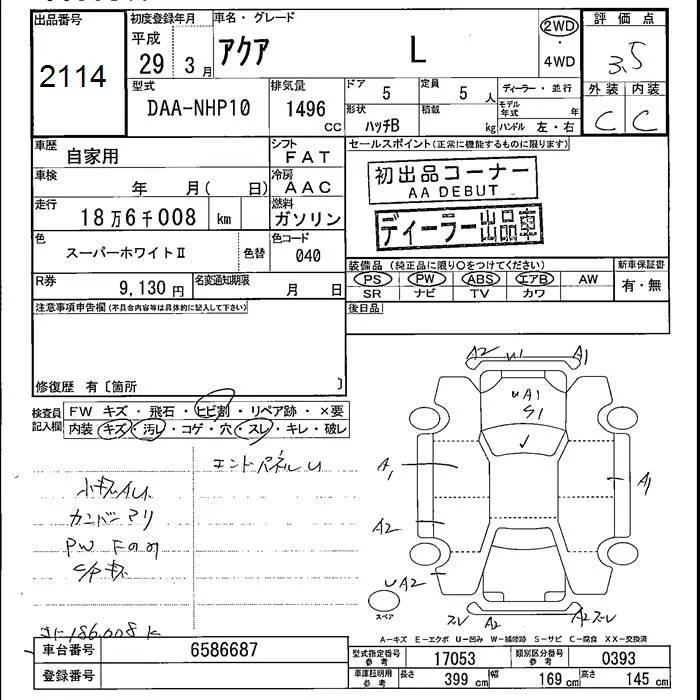 出品番号
2114
初度登録年月
平成
29 3月
車名・グレード
アクア L
2WD
・
4WD
評価点
3.5
外装 内装
C C
型式
DAA-NHP10
排気量
1496
CC
ドア
5
定員
5人
形状
ハッチB
積載
kg
ディーラー・並行
モデル年式 年
ハンドル 左・右
車歴
自家用
シフト
FAT
車検
年 月( 日)
冷房
AAC
走行
18万6千008 km
燃料
ガソリン
色
スーパーホワイトⅡ
色替
色コード
040
R券
9,130円
名変通知期限
月 日
セールスポイント(正常に機能するものに限ります)
初出品コーナー
AA DEBUT
ディーラー出品車
装備品 (純正品に限り○をつけてください)
PS PW ABS エアB AW
SR ナビ TV カワ
新車保証書
有・無
注意事項申告欄(不具合内容等は具体的に記入して下さい)
後日品
修復歴 有〔箇所 〕
検査員記入欄
FW キズ・飛石・ヒビ割・リペア跡・×要
内装 キズ・汚レ・コゲ・穴・スレ・キレ・破レ
エンドパネルU
小キズAU
カンバンアリ
PW Fのみ
C/Pキズ
186,008k
A2 U1 A1
UA1
S1
A1
A1
A2
UA2
スペア
スレ A2 A2スレ
A-キズ E-エクボ U-凹み W-補修跡 S-サビ C-腐食 XX-交換済
車台番号
6586687
登録番号
型式指定番号
参考
17053
類別区分番号
参考
0393
車庫証明用
参考
長さ 399 cm 幅 169 cm 高さ 145 cm